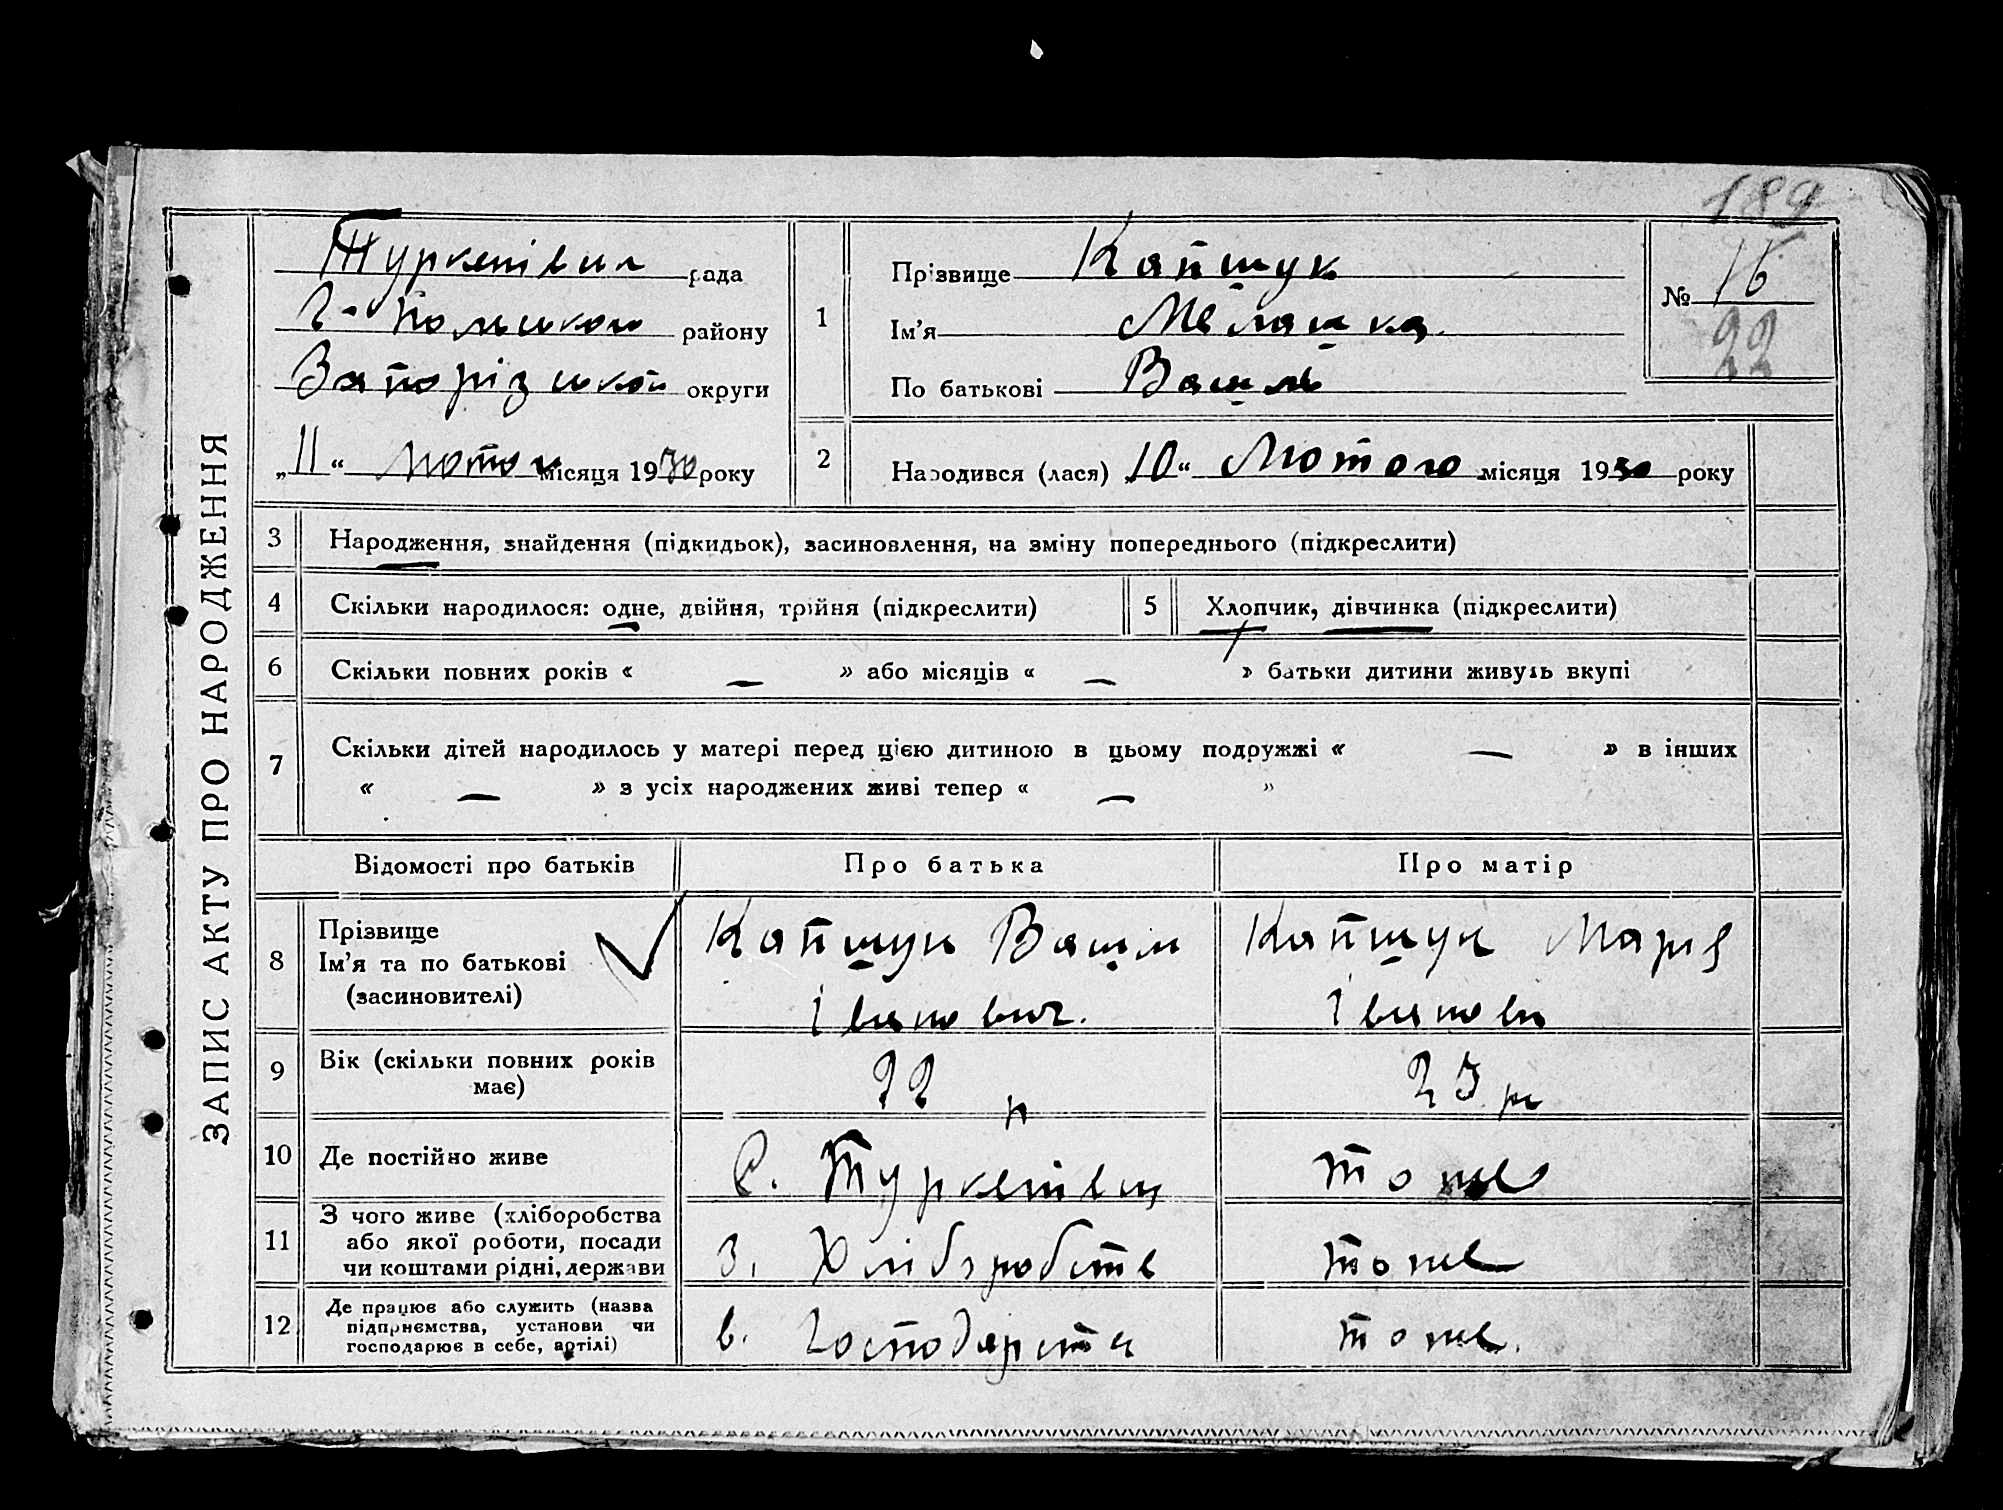 189
ЗАПИС АКТУ ПРО НАРОДЖЕННЯ
Туркенівка рада
Г-Польського району
Запорізької округи
„11“ Лютого місяця 1930 року
1
Прізвище Капшук
Ім’я Мелашка
По батькові Василь
№ 16
22
2
Народився (лася) „10“ Лютого місяця 1930 року
3 Народження, знайдення (підкидьок), засиновлення, на зміну попереднього (підкреслити)
4 Скільки народилося: одне, двійня, трійня (підкреслити)
5 Хлопчик, дівчинка (підкреслити)
6 Скільки повних років « — » або місяців « — » батьки дитини живуть вкупі
7 Скільки дітей народилось у матері перед цією дитиною в цьому подружжі « — » в інших
« — » з усіх народжених живі тепер « — »
Відомості про батьків Про батька Про матір
8 Прізвище
Ім’я та по батькові
(засиновителі)
Капшук Василь
Іванович.
Капшук Марія
Іванови
9 Вік (скільки повних років
має)
22 р
23 р
10 Де постійно живе
с. Туркенівці
тоже
11 З чого живе (хліборобства
або якої роботи, посади
чи коштами рідні, держави
З. Хліборобств
тоже
12 Де працює або служить (назва
підприємства, установи чи
господарює в себе, артілі)
в. Господарств
тоже.